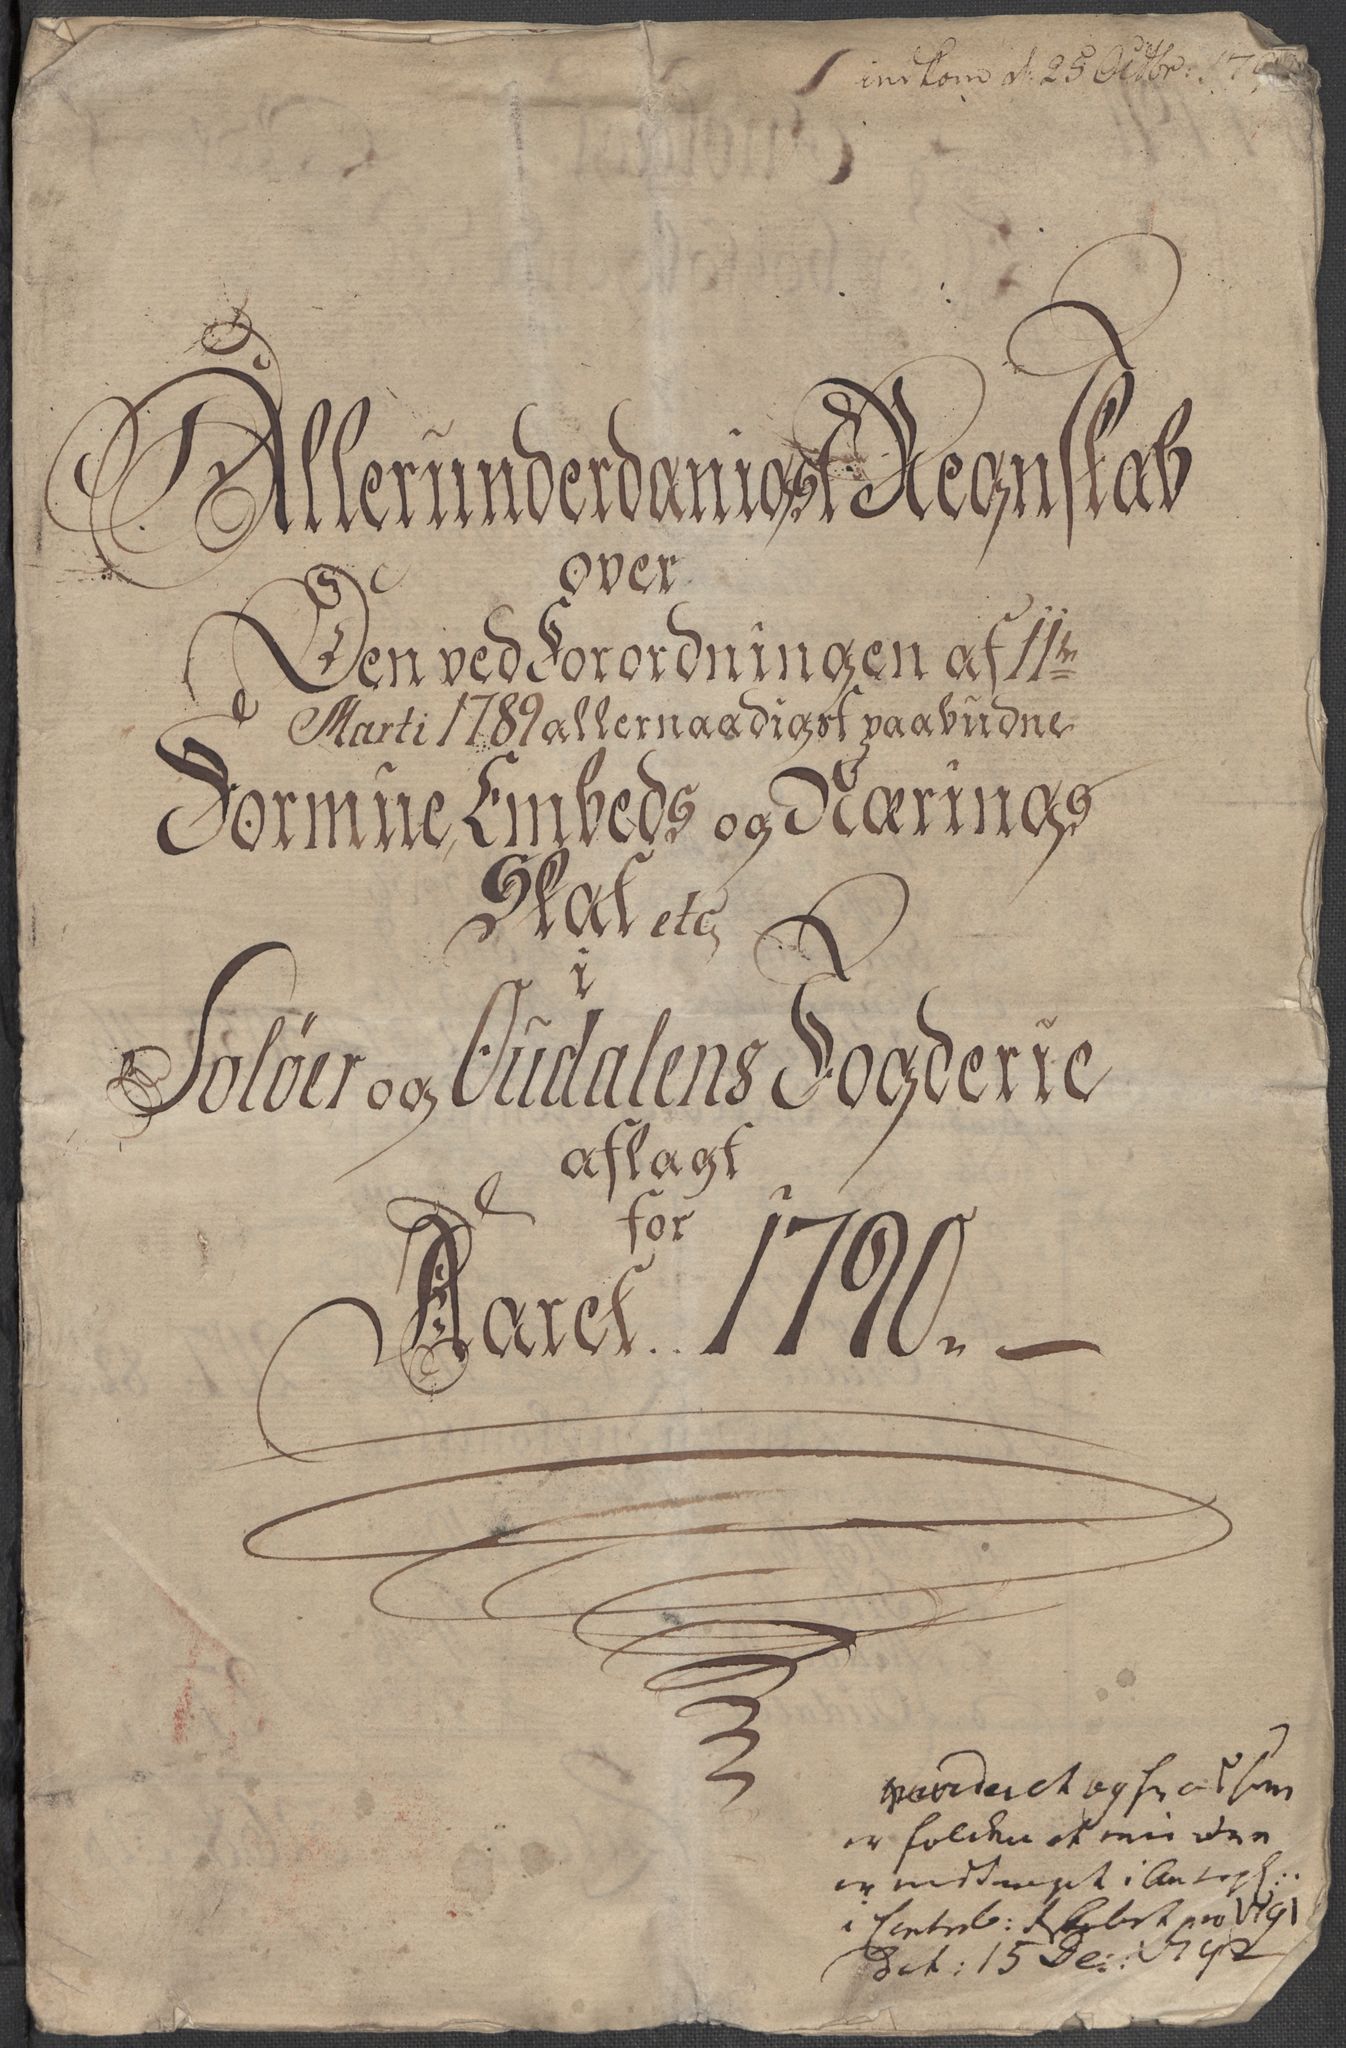 indkom d: 25 Octbr: 179
Allerunderdanigst Regnskab
over
Den ved Forordningen af 11te
Marti 1789 allernaadigst paabudne
Formue, Embeds og Nærings
Skat etc
i
Soløer og Oudalens Fogderie
aflagt
for
Aaret .. 1790. —
og som
er
er i
i pro 1791
Det: 15 De: 1792